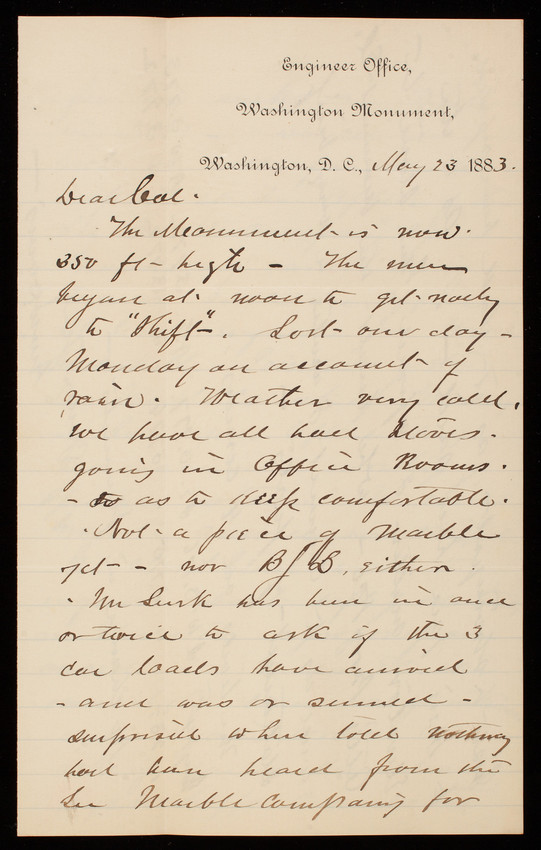 Engineer Office,
Washington Monument,
Washington, D. C., May 23 1883.
Dear Col.
The Monument is now
350 ft high - The men
began at noon to get ready
to "Shift". Lost one day -
Monday on account of
rain. Weather very cold.
We have all had stoves
going in Office Rooms.
- so as to keep comfortable.
Not a piece of Marble
yet - nor B S, either.
Mr has been in once
or twice to ask if the 3
car loads have arrived
- and was or seemed -
surprised when told nothing
had been heard from the
Lee Marble Company for